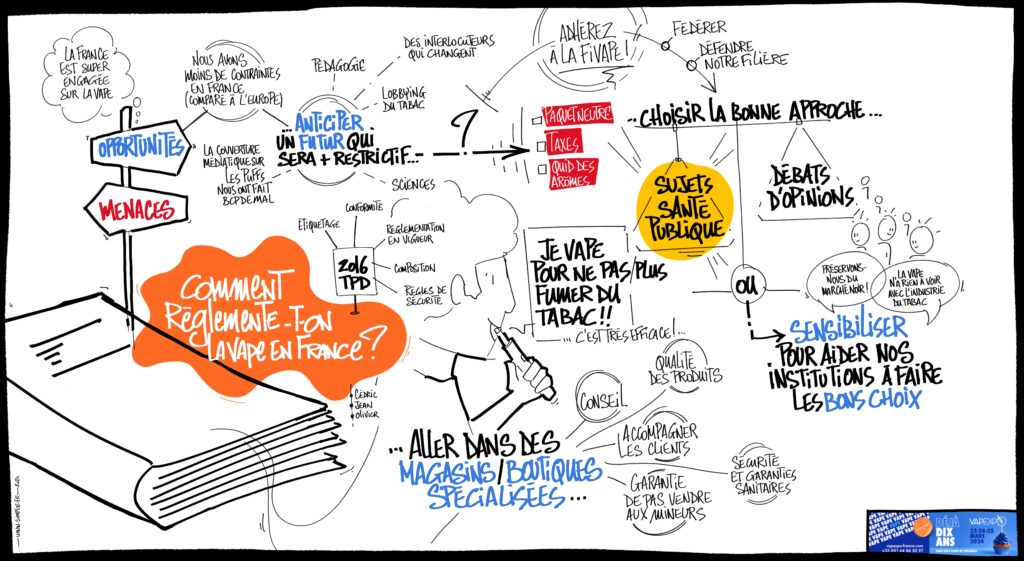 LA FRANCE
EST SUPER
ENGAGÉE
SUR LA VAPE
OPPORTUNITÉS
MENACES
NOUS AVONS
MOINS DE CONTRAINTES
EN FRANCE
(COMPARÉ À L'EUROPE)
PÉDAGOGIE
DES INTERLOCUTEURS
QUI CHANGENT
LOBBYING
DU TABAC
... ANTICIPER
UN FUTUR QUI
SERA + RESTRICTIF...
LA COUVERTURE
MÉDIATIQUE SUR
LES PUFFS
NOUS ONT FAIT
BCP DE MAL
SCIENCES
?
ADHÉREZ
À LA FIVAPE !
FÉDÉRER
DÉFENDRE
NOTRE FILIÈRE
PAQUET NEUTRE
TAXES
QUID DES
ARÔMES
...CHOISIR LA BONNE APPROCHE...
SUJETS
SANTÉ
PUBLIQUE
DÉBATS
D'OPINIONS
OU
PRÉSERVONS-
NOUS DU
MARCHÉ NOIR !
LA VAPE
N'A RIEN À VOIR
AVEC L'INDUSTRIE
DU TABAC
SENSIBILISER
POUR AIDER NOS
INSTITUTIONS À FAIRE
LES BONS CHOIX
COMMENT
RÉGLEMENTE-T-ON
LA VAPE EN FRANCE ?
CÉDRIC
JEAN
OLIVIER
ETIQUETAGE
CONFORMITÉ
RÉGLEMENTATION
EN VIGUEUR
2016
TPD
COMPOSITION
RÈGLES DE
SÉCURITÉ
JE VAPE
POUR NE PAS/PLUS
FUMER DU
TABAC !!
... C'EST TRÈS EFFICACE !...
... ALLER DANS DES
MAGASINS/BOUTIQUES
SPÉCIALISÉES ...
CONSEIL
QUALITÉ
DES PRODUITS
ACCOMPAGNER
LES CLIENTS
GARANTIE
DE PAS VENDRE
AUX MINEURS
SÉCURITÉ
ET GARANTIES
SANITAIRES
DÉJÀ
DIX
ANS
VAPEXPO
23-24-25
MARS
2024
vapexpo-france.com